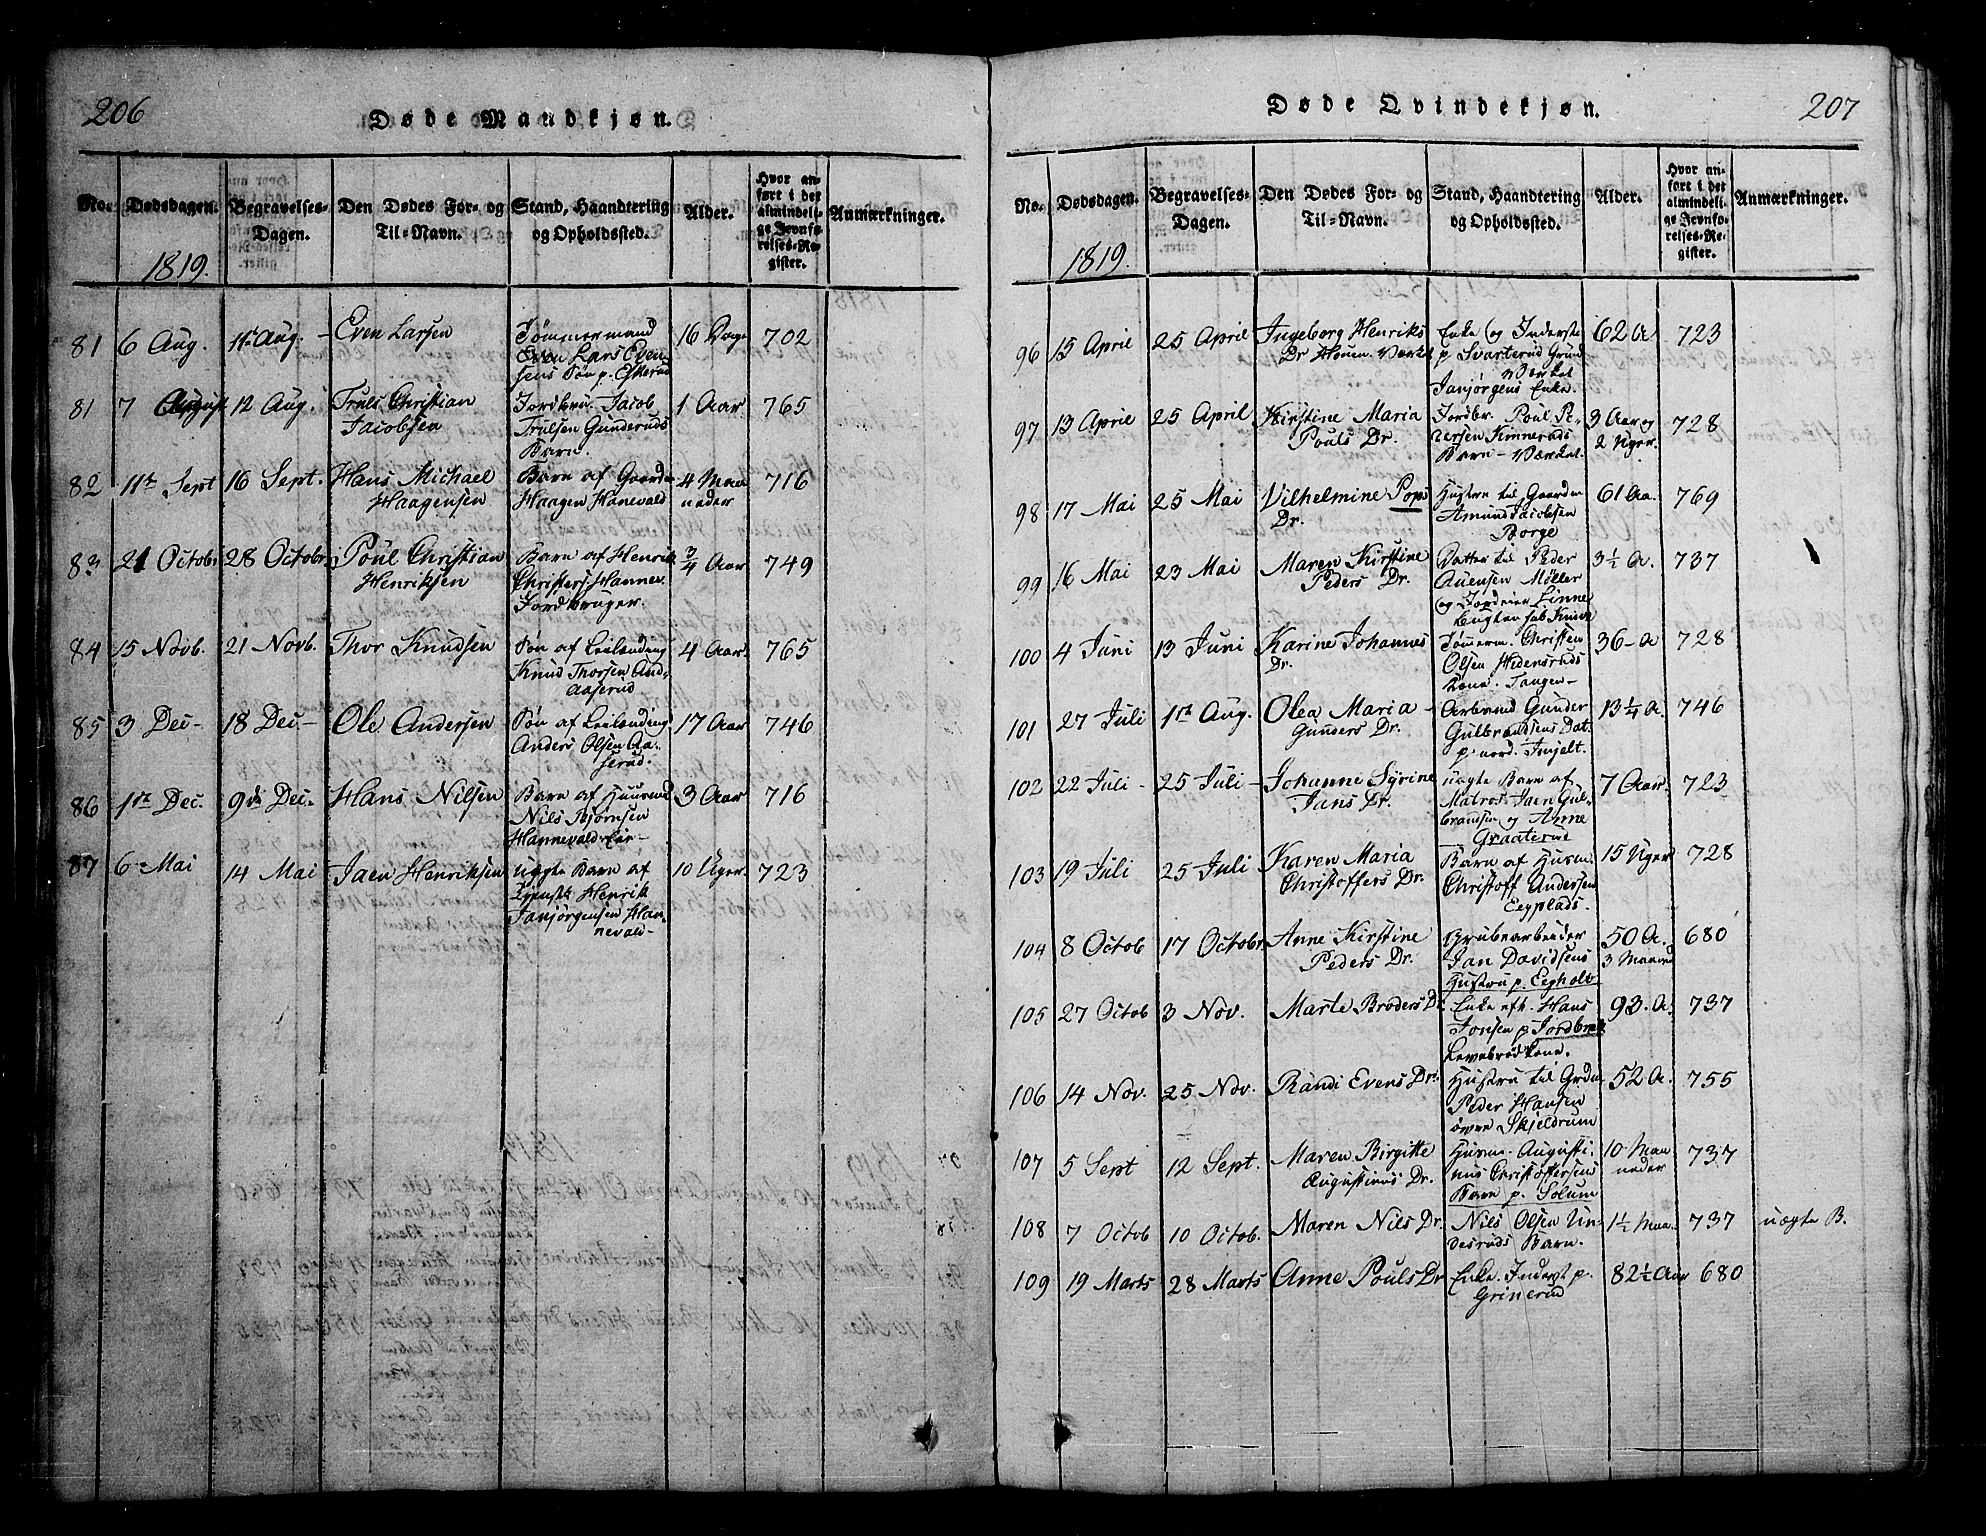 206
Døde Mandkjøn.
No.
Dødsdagen.
Begravelses-
Dagen.
Den Dødes For- og
Til-Navn.
Stand, Haandtering
og Opholdssted.
Alder.
Hvor an-
ført i det
almindeli-
ge Jevnfø-
relses-Re-
gister.
Anmærkninger.
1819.
81 6 Aug. 11te Aug. – Even Larsen Tømmermand 16 Dage 702
Lars Even-
sens Søn p.
81 7 August 12 Aug. Truls Christian Jordbru. Jacob 1 Aar 765
Jacobsen Trulsen Gunderuds
Barn.
82 11te Sept 16 Sept. Hans Michael Barn af Gaardm 4 Maa 716
Haagensen Haagen Hanevald neder
83 21 Octobr 28 Octobr. Poul Christian Barn af Henrik 3/4 Aar 749
Henriksen Christens Hannev.
Jordbruger.
84 15 Novb. 21 Novb. Thor Knudsen Søn af Leilending 4 Aar 765
Knud Thorsen And-
aaserud
85 3 Dec – 18 Dec – Ole Andersen Søn af Leilending 17 Aar 746
Anders Olsen Aa-
serud.
86 1te Dec. 9de Dec. Hans Nilsen Barn af Huusmd 3 Aar 716
Nils Bjørnsen
Hannevald Eie –
87 6 Mai 14 Mai Jaen Henriksen uægte Barn af 10 Uger. 723
Henrik
Janjørgensen Han-
nevald –
207
Døde Qvindekjøn.
No.
Dødsdagen.
Begravelses-
Dagen.
Den Dødes For- og
Til-Navn.
Stand, Haandtering
og Opholdssted.
Alder.
Hvor an-
ført i det
almindeli-
ge Jevnfø-
relses-Re-
gister.
Anmærkninger.
1819.
96 15 April 25 April Ingeborg Henriks Enke og Inderste 62 A 723
Dr Værket p. Svarterud Grund
Værket
Janjørgens Enke.
97 13 April 25 April Kirstine Maria Jordbr. Poul Pe- 3 Aar og 728
Pouls Dr. dersen Kimeruds 2 Uger.
Barn – Værket.
98 17 Mai 25 Mai Vilhelmine Pops Hustru til Gaardm 61 Aa. 769
Dr. Amund Jacobsen
Borge
99 16 Mai 23 Mai Maren Kirstine Datter til Peder 3½ A. 737
Peders Dr. Møller
og Jordeier Linne
100 4 Juni 13 Juni Karine Johannes Tømerm. Christen 36 – A 728
Dr. Olsen Hedensruds
Kone. Tangen –
101 27 Juli 1te Aug. Olea Maria – Arbmd Gunder 13¼ A. 746
Gunders Dr. Gulbrandsens Dat.
p. nord.
102 22 Juli – 25 Juli – Johanne Syrine uægte Barn af 7 Aar. 723
Jans Dr. Matros Jaen Gul-
bransen og Anne
Graaterue
103 19 Juli 25 Juli Karen Maria Barn af Husm. 15 Uger 728
Christoffers Dr. Christoff Andersen
Eegplads.
104 8 Octob 17 Octobr. Anne Kirstine Grubearbeider 50 A. 680
Peders Dr. Jan Davidsens 3 Maaned
Hustru p. Eegholt
105 27 Octob 3 Nov. Marte Broders Dr Enke eft. Hans 93. A. 737
Jonsen p Jordbræk
Levebrødkone.
106 14 Nov. 25 Nov. Randi Evens Dr. Hustru til Grdm 52 A. 755
Peder Hansen
øvre Skjeldrum
107 5 Sept 12 Sept. Maren Birgitte Husm. Augusti- 10 Maa 737
Augustinus Dr. nus Christoffersens neder
Barn p. Solum
108 7 Octob 10 Octob. Maren Nils Dr. Nils Olsen Un- 1½ Maa 737 uægte B.
desruds Barn.
109 19 Marts 28 Marts Anne Pouls Dr Enke. Inderst p. 82½ Aar 680
Grinerud